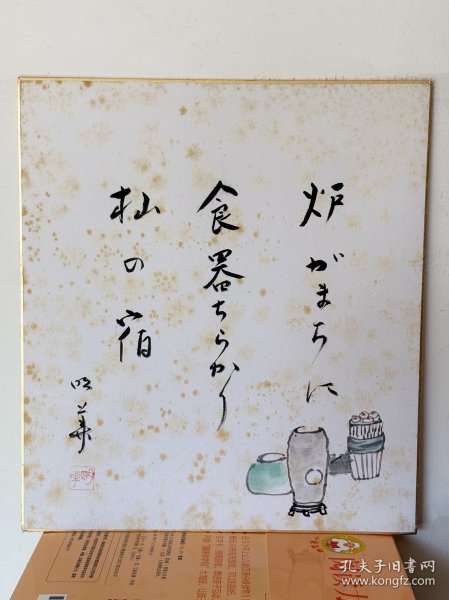 炉がまちに
食器ちらかり
杣の宿
明華
孔夫子旧书网
www.kongfz.com